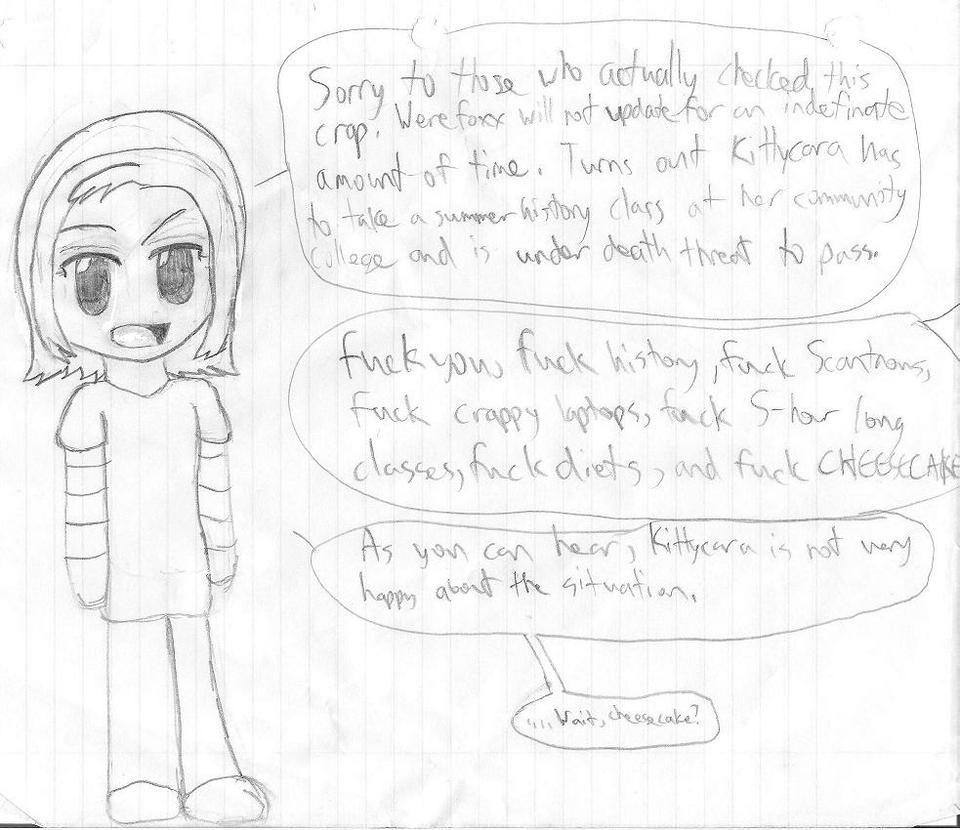 Sorry to those who actually checked this
crap. Werefoxx will not update for an indefinate
amount of time. Turns out Kittycara has
to take a summer history class at her community
college and is under death threat to pass.
fuck you, fuck history, fuck Scantrons,
fuck crappy laptops, fuck 5-hour long
classes, fuck diets, and fuck CHEESECAKE
As you can hear, Kittycara is not very
happy about the situation.
.... Wait, cheesecake?